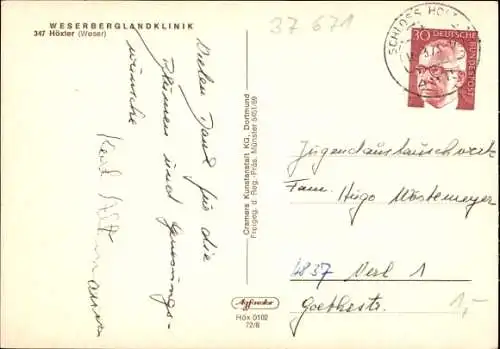 WESERBERGLANDKLINIK
347 Höxter (Weser)
37 671
SCHLOSS HOL
30 DEUTSCHE BUNDESPOST
Vielen Dank für die
Blumen und Genesungs-
wünsche
Karl
Cramers Kunstanstalt KG, Dortmund
Freigeg. d. Reg.-Präs. Münster 5401/69
Jugendaustauschwerk
Fam. Hugo Westemeyer
4837 Verl 1
Goethestr.
1,-
Höx 0102
72/8